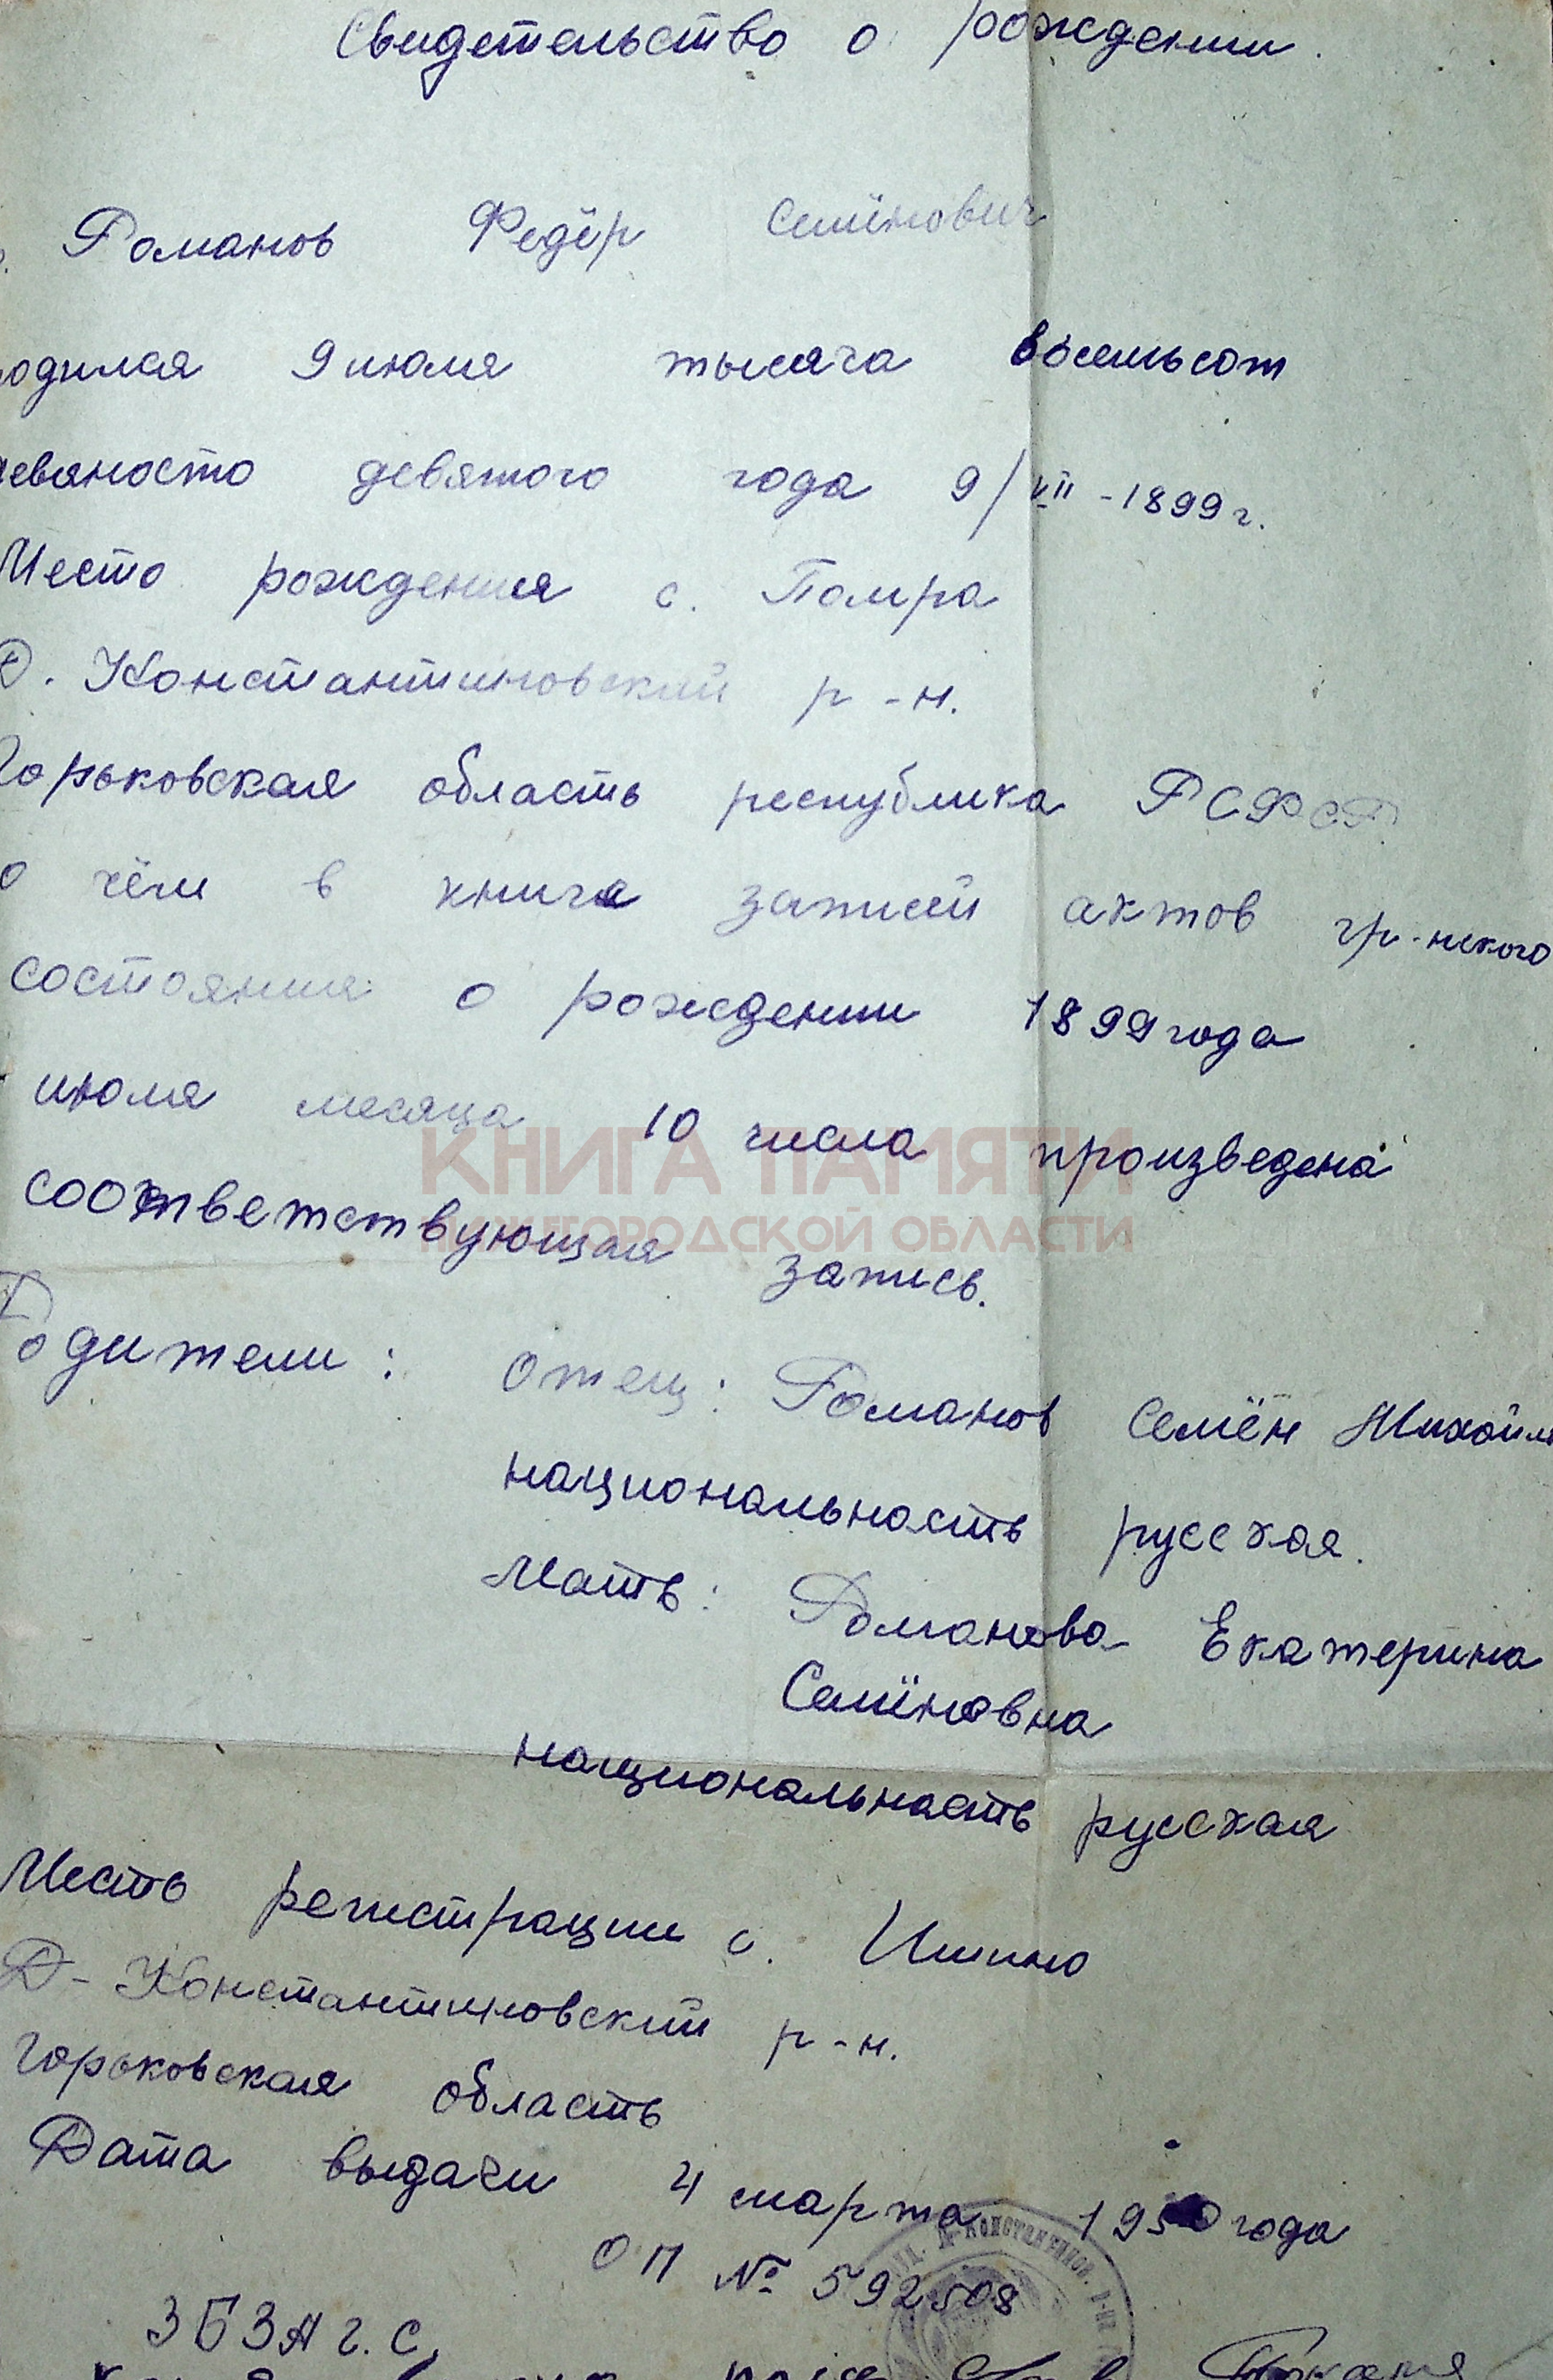 Свидетельство о рождении.
Романов Федёр Семёнович
одился 9 июля тысяча восемьсот
евяносто девятого года 9/VII-1899 г.
Место рождения с. Помра
Д. Константиновский р-н.
Горьковская область республика РСФСР
о чём в книге записей актов гр-нского
состояния о рождении 1899 года
июля месяца 10 числа произведена
КНИГА ПАМЯТИ
соответствующая запись.
НИЖЕГОРОДСКОЙ ОБЛАСТИ
Родители: Отец: Романов Семён Михайл
национальность русская.
Мать: Романова Екатерина
Семёновна
национальность русская
Место регистрации с.
Д-Константиновский р-н.
Горьковская область
Дата выдачи 4 марта 1950 года
ОП № 592508